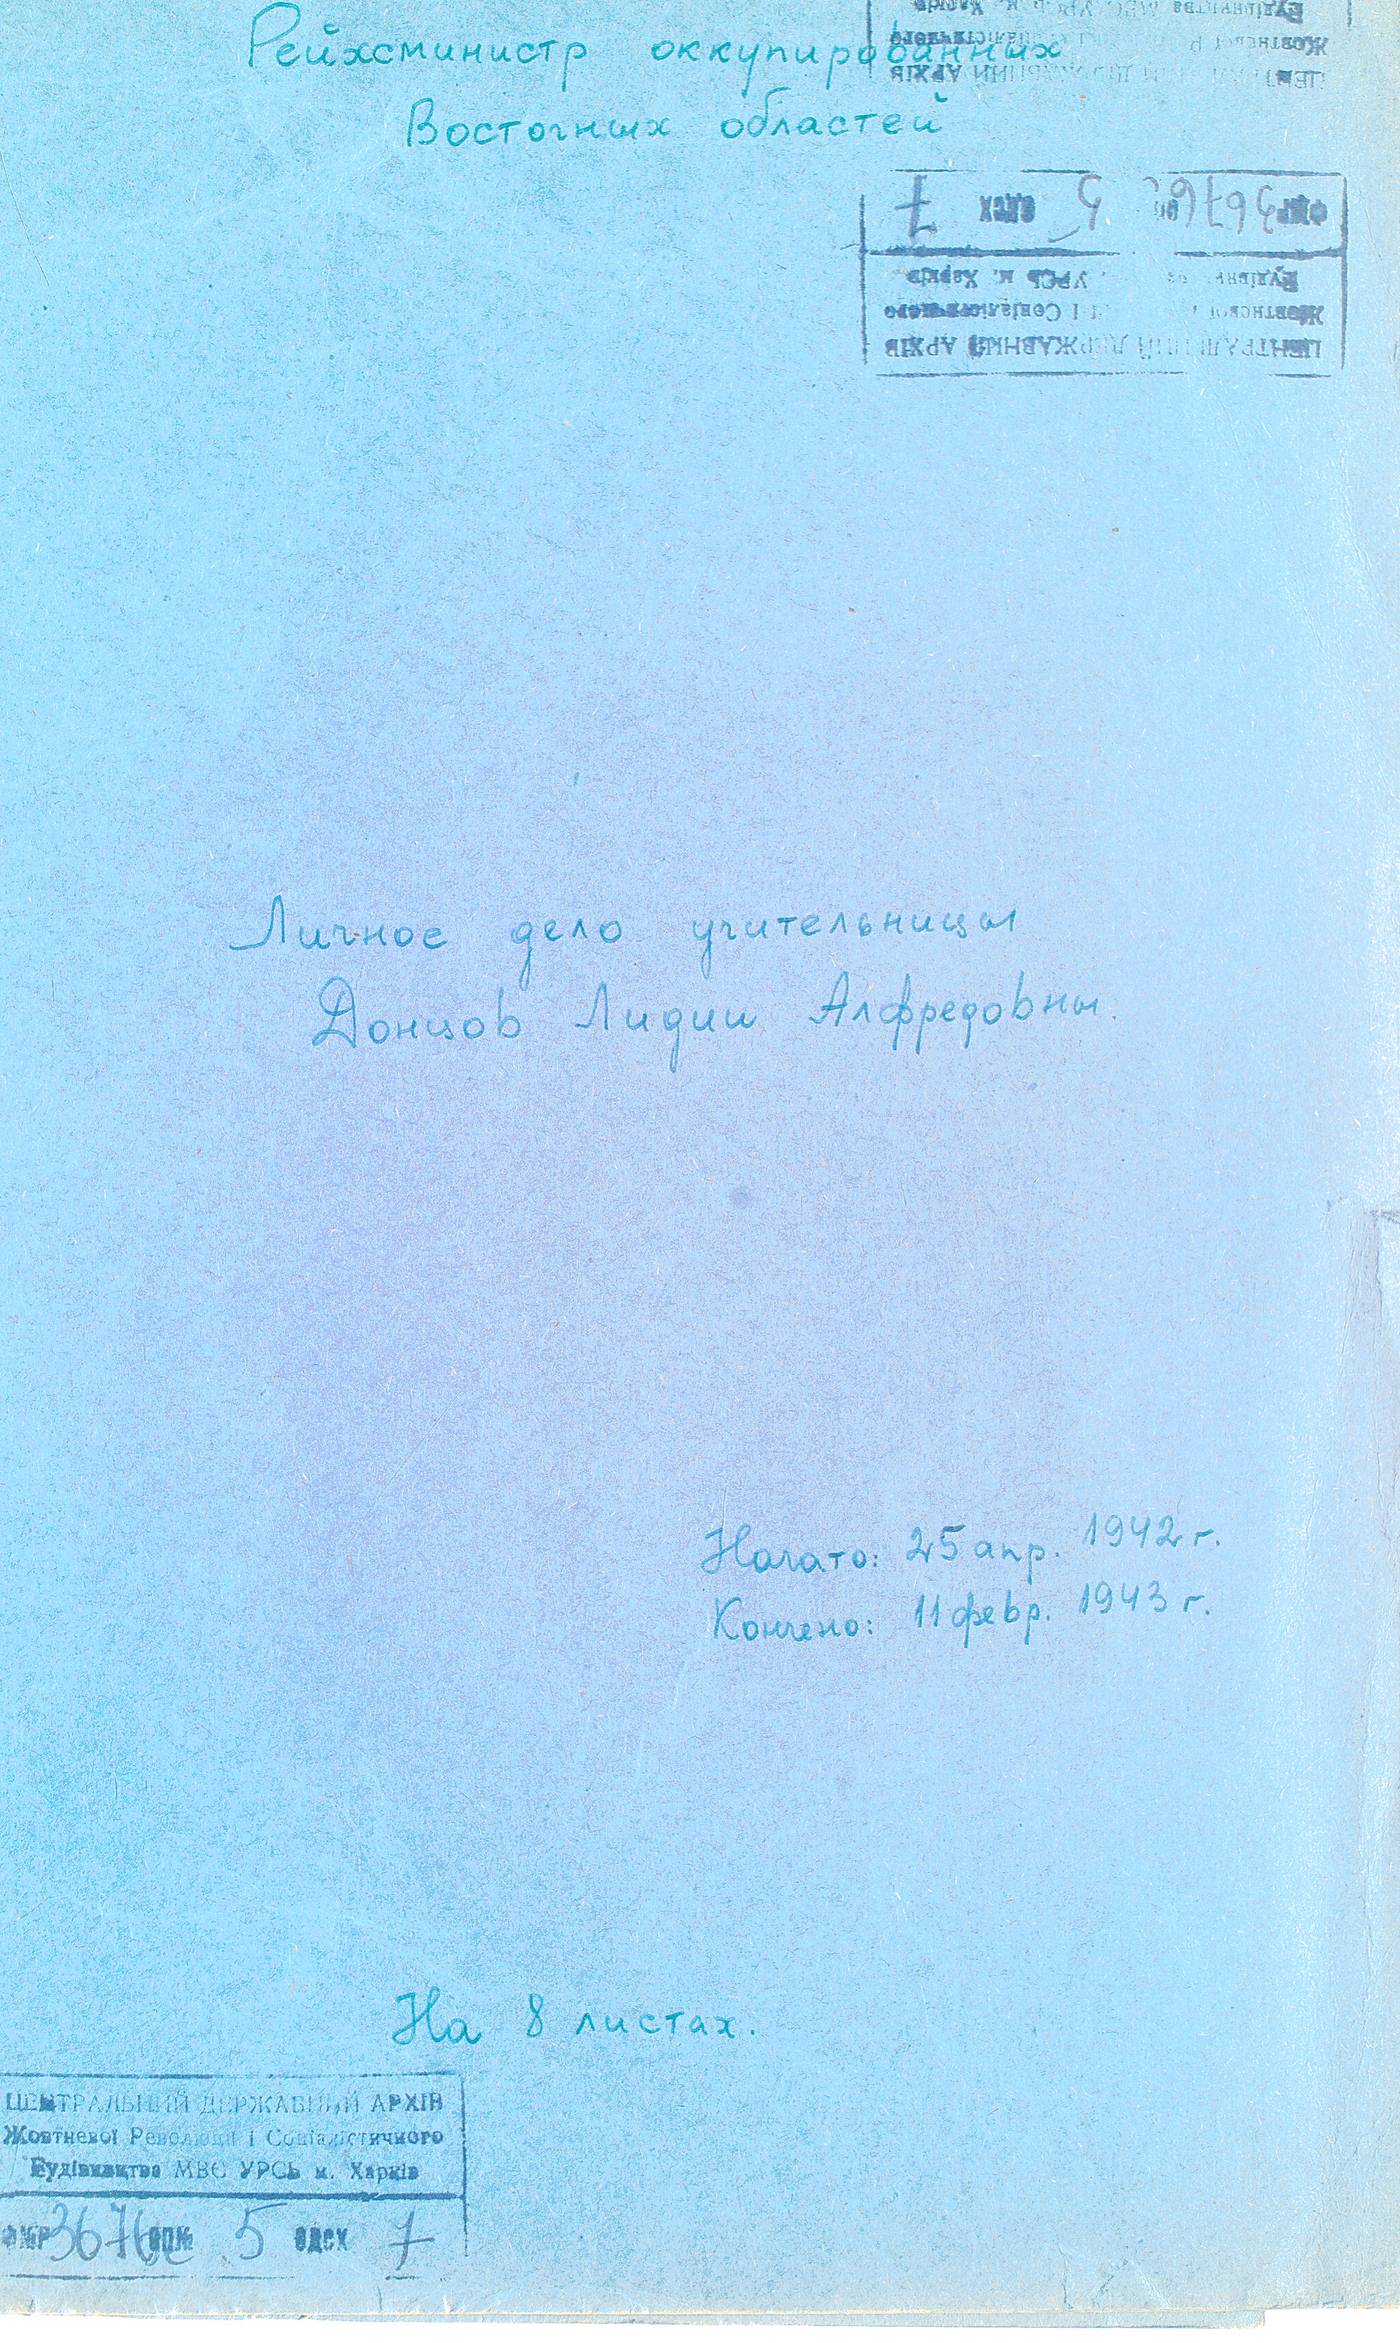 Рейхсминистр оккупированных
Восточных областей
Личное дело учительницы
Донцов Лидии Алфредовны.
Начато: 25 апр. 1942 г.
Кончено: 11 февр. 1943 г.
На 8 листах.
ЦЕНТРАЛЬНИЙ ДЕРЖАВНИЙ АРХІВ
Жовтневої Революції і Соціалістичного
Будівництва МВС УРСР м. Харків
3676 5 7
ЦЕНТРАЛЬНИЙ ДЕРЖАВНИЙ АРХІВ
Жовтневої і Соціалістичного
УРСР м. Харків
3676 оп 5 7
ЦЕНТРАЛЬНИЙ ДЕРЖАВНИЙ АРХІВ
Жовтневої
Будівництва МВС УРСР м. Харків